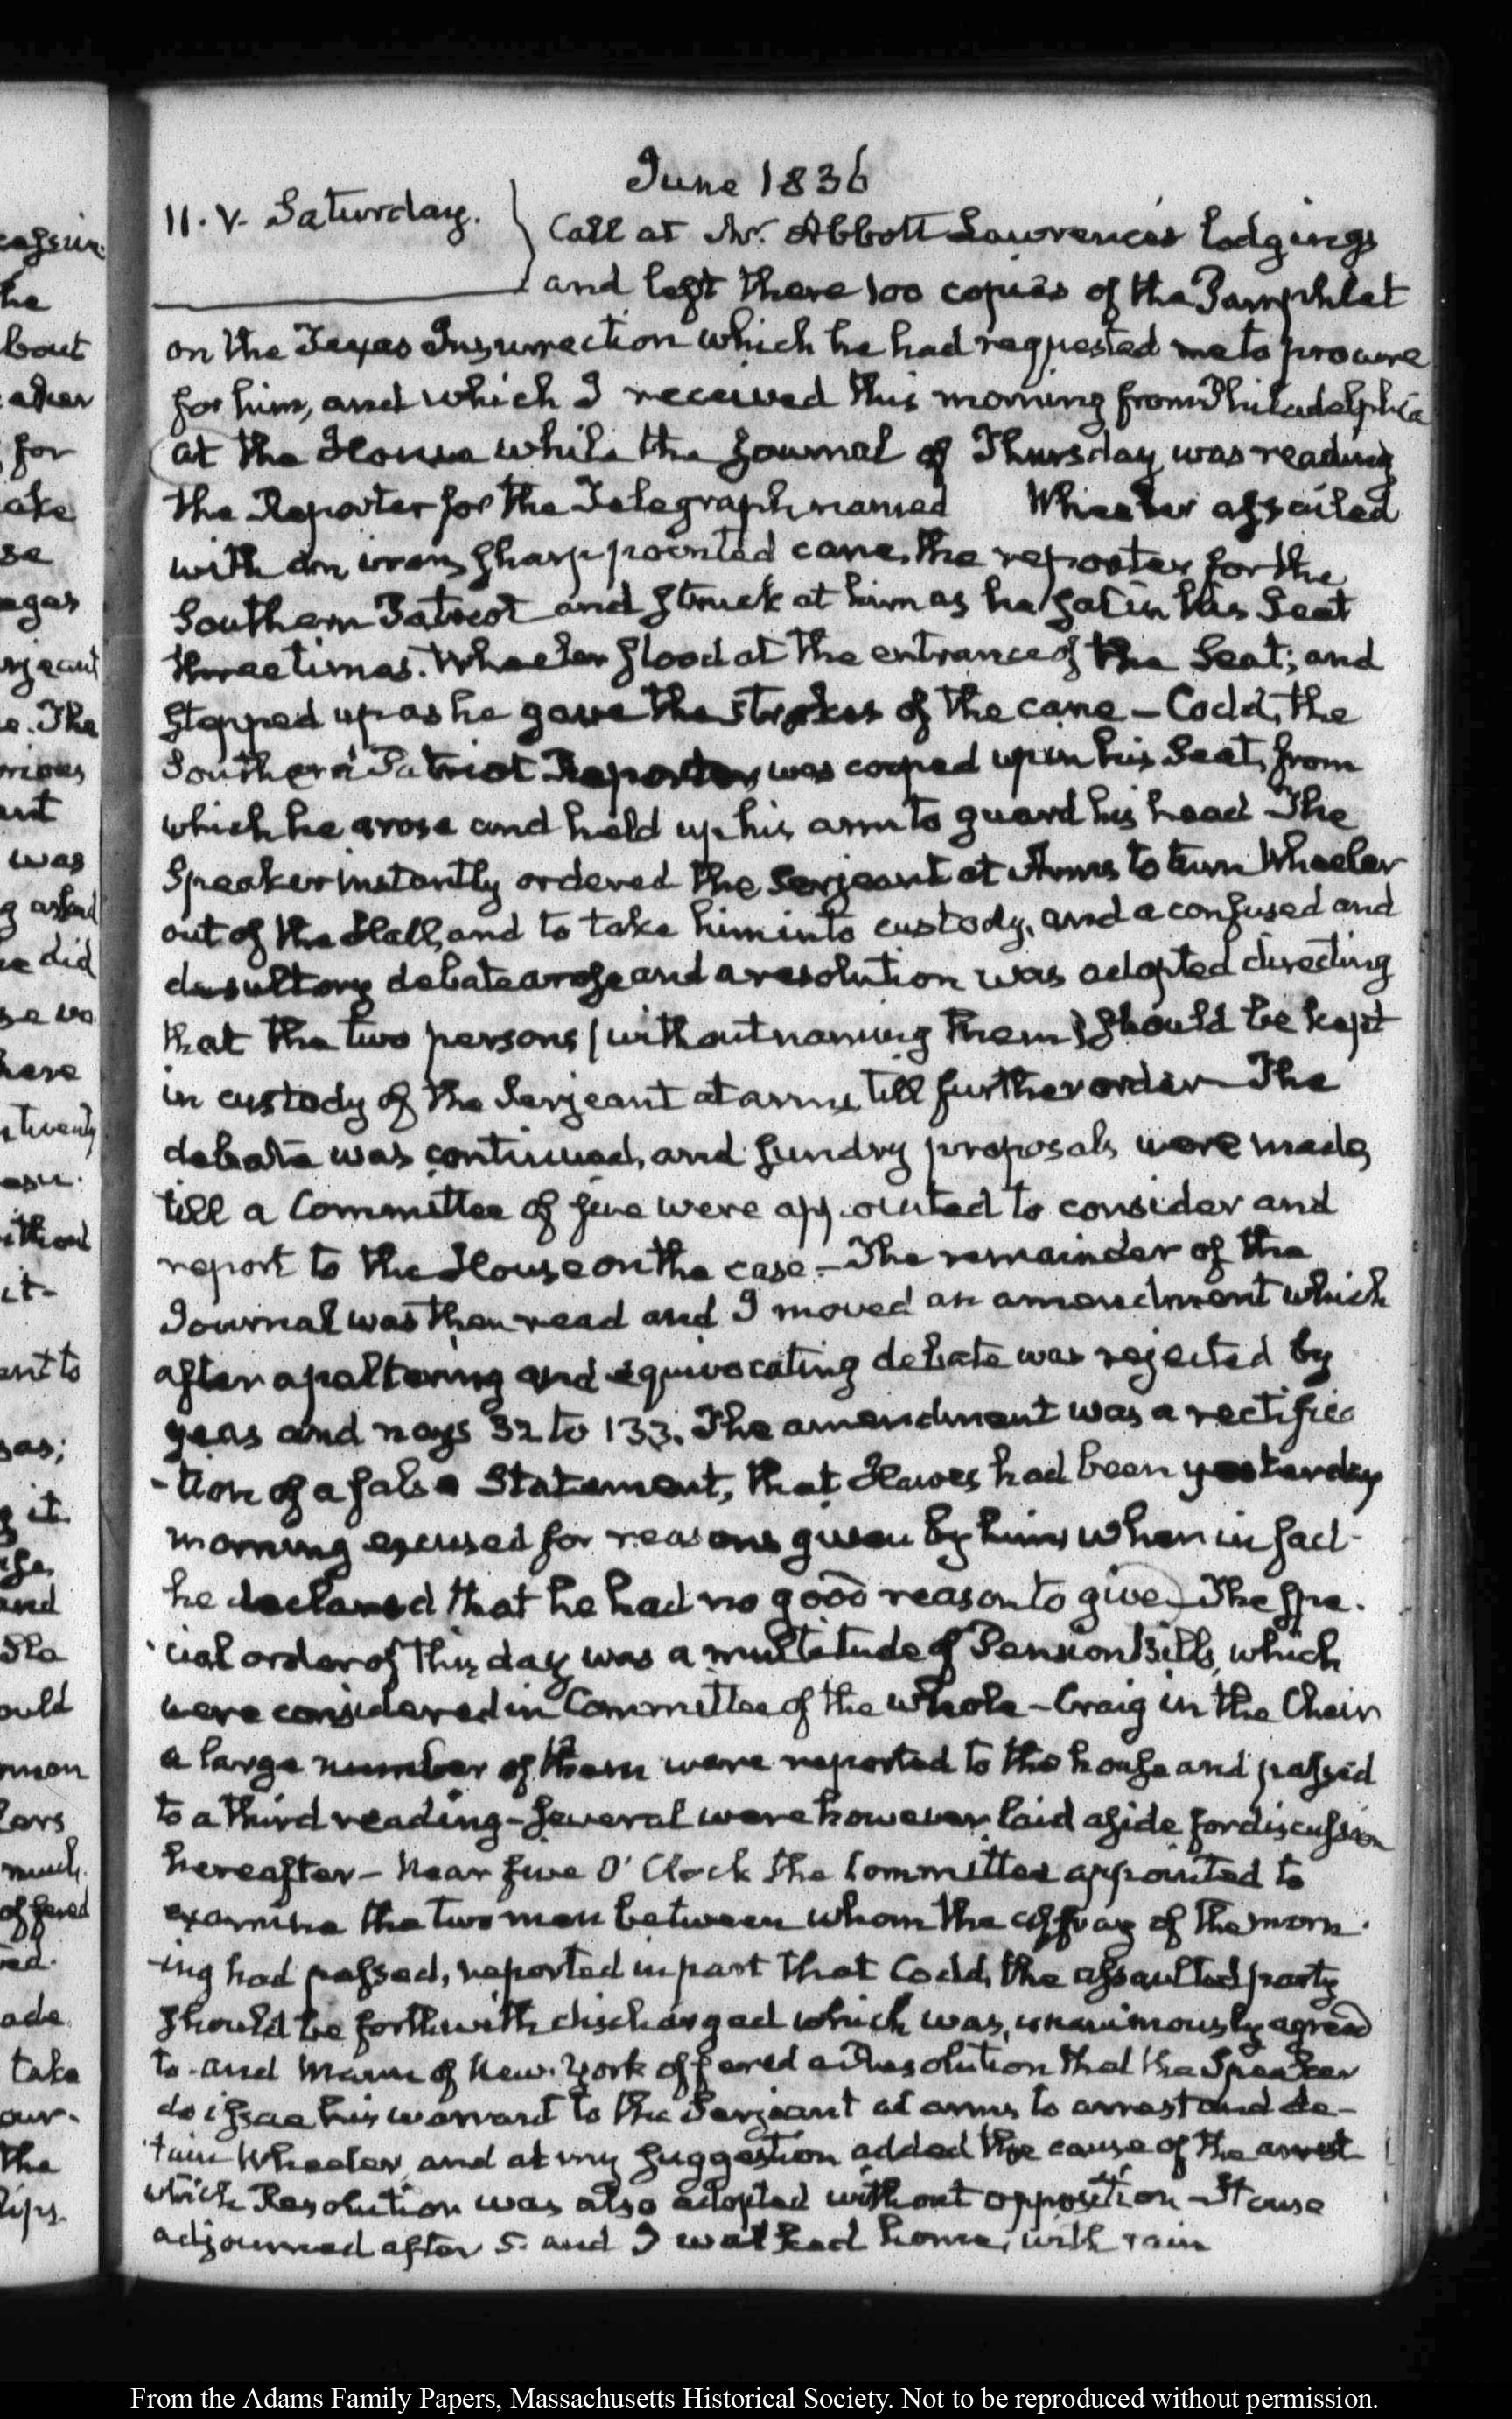 June 1836
11. V. Saturday.
Call at Mr. Abbott Lawrence's lodgings
and left there 100 copies of the Pamphlet
on the Texas Insurrection which he had requested me to procure
for him, and which I received this morning from Philadelphia
at the House while the Journal of Thursday was reading
the Reporter for the Telegraph, named Wheeler assailed
with an iron, sharp pointed cane, the reporter for the
Southern Patriot and struck at him as he sat in his Seat
three times. Wheeler stood at the entrance of the Seat; and
stepped up as he gave the strokes of the cane – Codd, the
Southern Patriot Reporter, was cooped up in his Seat, from
which he arose and held up his arm to guard his head The
Speaker instantly ordered the Serjeant at Arms to turn Wheeler
out of the Hall, and to take him into custody, and a confused and
desultory debate arose and a resolution was adopted directing
that the two persons (without naming them) should be kept
in custody of the Serjeant at arms, till further order – The
debate was continued, and sundry proposals were made,
till a Committee of five were appointed to consider and
report to the House on the case. – The remainder of the
Journal was then read and I moved an amendment which
after a paltering and equivocating debate was rejected by
yeas and nays 32 to 133. The amendment was a rectifica
-tion of a false Statement, that Hawes had been yesterday
morning excused for reasons given by him, when in fact
he declared that he had no good reason to give – The spe-
cial order of this day was a multitude of Pension Bills, which
were considered in Committee of the whole – Craig in the Chair
a large number of them were reported to the house and passed
to a third reading – several were however laid aside for discussion
hereafter – Near five O' Clock the Committee appointed to
examine the two men between whom the affray of the morn-
-ing had passed, reported in part that Codd, the assaulted party
should be forthwith discharged which was, unanimously agreed
to – and Mann of New-York offered a Resolution that the Speaker
do issue his warrant to the Serjeant at arms to arrest and de-
tain Wheeler, and at my suggestion added the cause of the arrest
which Resolution was also adopted without opposition – House
adjourned after 5. and I walked home, with rain
From the Adams Family Papers, Massachusetts Historical Society. Not to be reproduced without permission.